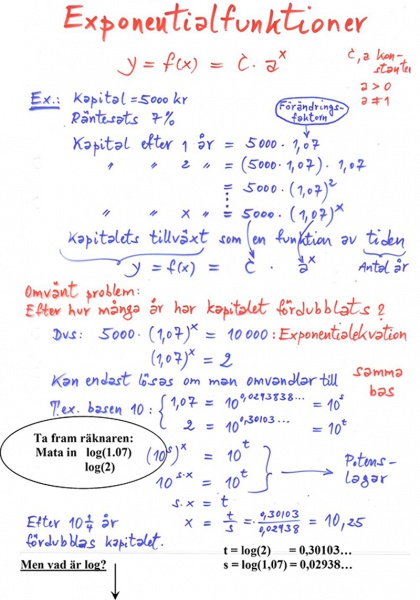 Exponentialfunktioner
y = f(x) = C · a^x
C, a kon-
stanter
a > 0
a ≠ 1
Ex.: Kapital = 5000 kr
Räntesats 7%
Förändrings-
faktorn
Kapital efter 1 år = 5000 · 1,07
" " 2 " = (5000 · 1,07) · 1,07
= 5000 · (1,07)^2
⋮
" " x " = 5000 · (1,07)^x
Kapitalets tillväxt som en funktion av tiden
y = f(x) = C · a^x
Antal år
Omvänt problem:
Efter hur många år har kapitalet fördubblats?
Dvs: 5000 · (1,07)^x = 10 000 : Exponentialekvation
(1,07)^x = 2
Kan endast lösas om man omvandlar till
samma
bas
T.ex. basen 10: { 1,07 = 10^0,0293838... = 10^s
2 = 10^0,30103... = 10^t
Ta fram räknaren:
Mata in log(1.07)
log(2)
(10^s)^x = 10^t
10^s·x = 10^t
Potens-
lagar
s · x = t
Efter 10 1/4 år
fördubblas kapitalet.
x = t/s = 0,30103/0,02938 = 10,25
t = log(2) = 0,30103...
s = log(1,07) = 0,02938...
Men vad är log?